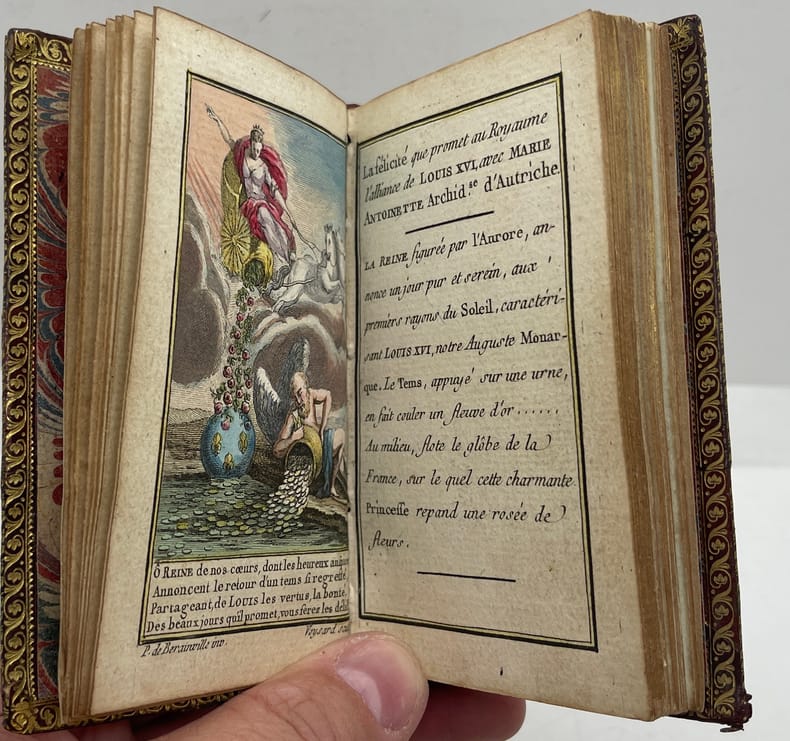 Ô REINE de nos cœurs, dont les heureux
Annoncent le retour d'un tems si regretté,
Partageant, de LOUIS les vertus, la bonté,
Des beaux jours qu'il promet, vous ferés les
P. de Berainville inv.
Voysard
La félicité que promet au Royaume
l'alliance de LOUIS XVI, avec MARIE
ANTOINETTE Archid.se d'Autriche.
LA REINE figurée par l'Aurore, an-
nonce un jour pur et serein, aux
premiers rayons du Soleil, caractéri-
sant LOUIS XVI, notre Auguste Monar-
que. Le Tems, appuyé sur une urne,
en fait couler un fleuve d'or ......
Au milieu, flote le glôbe de la
France, sur le quel cette charmante
Princesse repand une rosée de
fleurs.